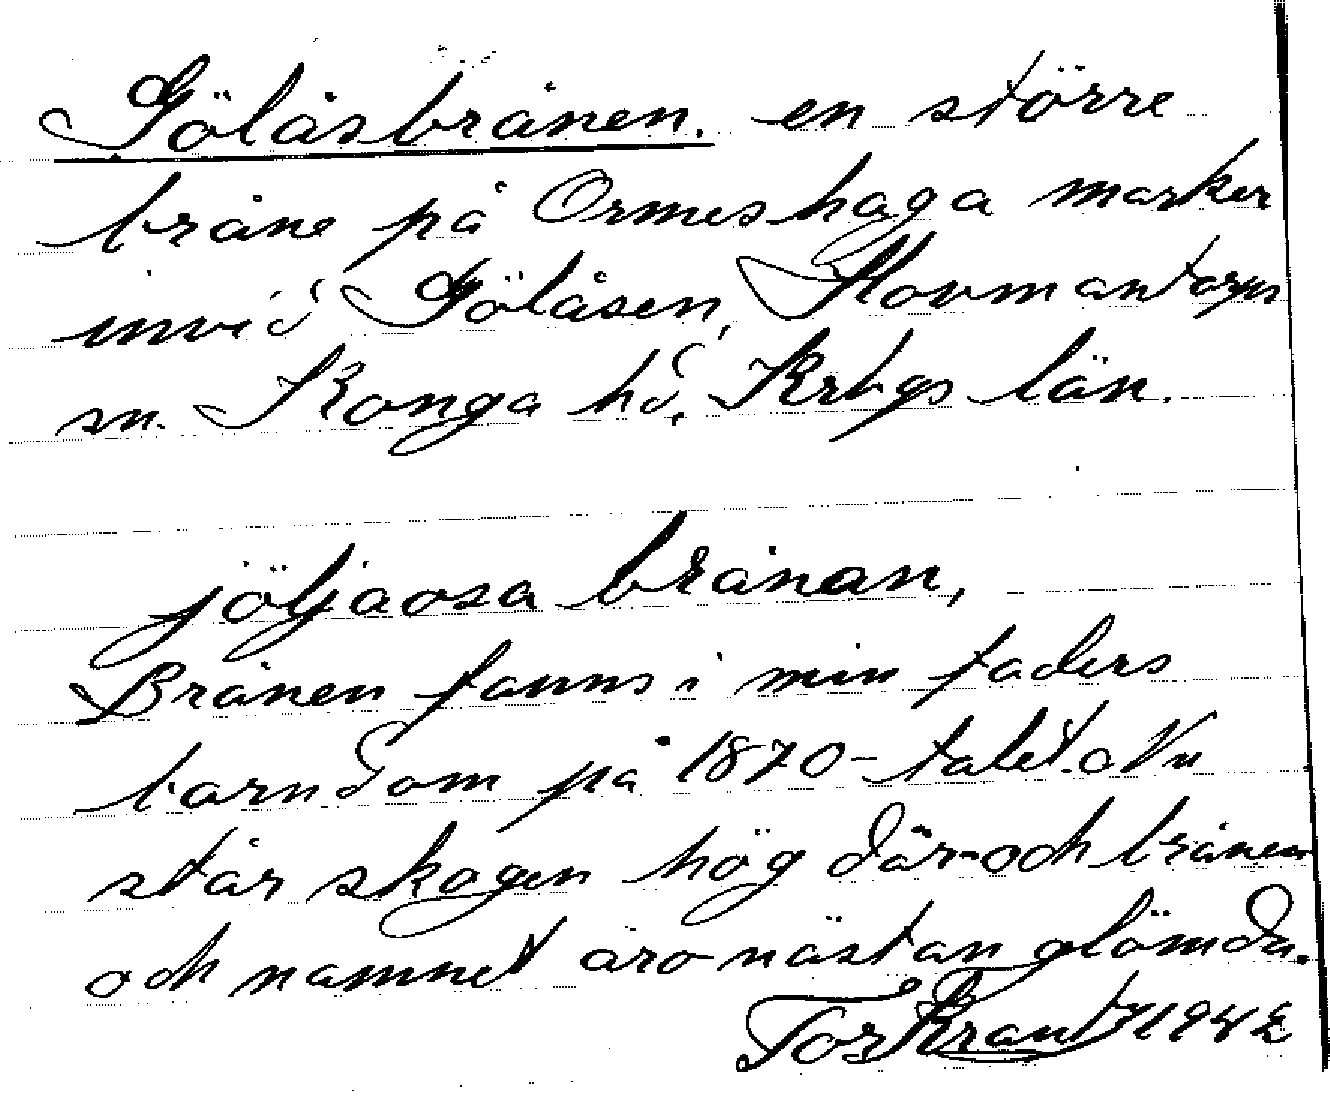 Gölåsbrånen. en större
bråne på Ormeshaga marker
invid Gölåsen, Hovmantorps
sn. Konga hd, Krbgs län.
jöljaosa brånan,
Brånen fanns i min faders
barndom på 1870-talet. Nu
står skogen hög där och brånen
och namnet äro nästan glömda.
Tor Krantz 1942